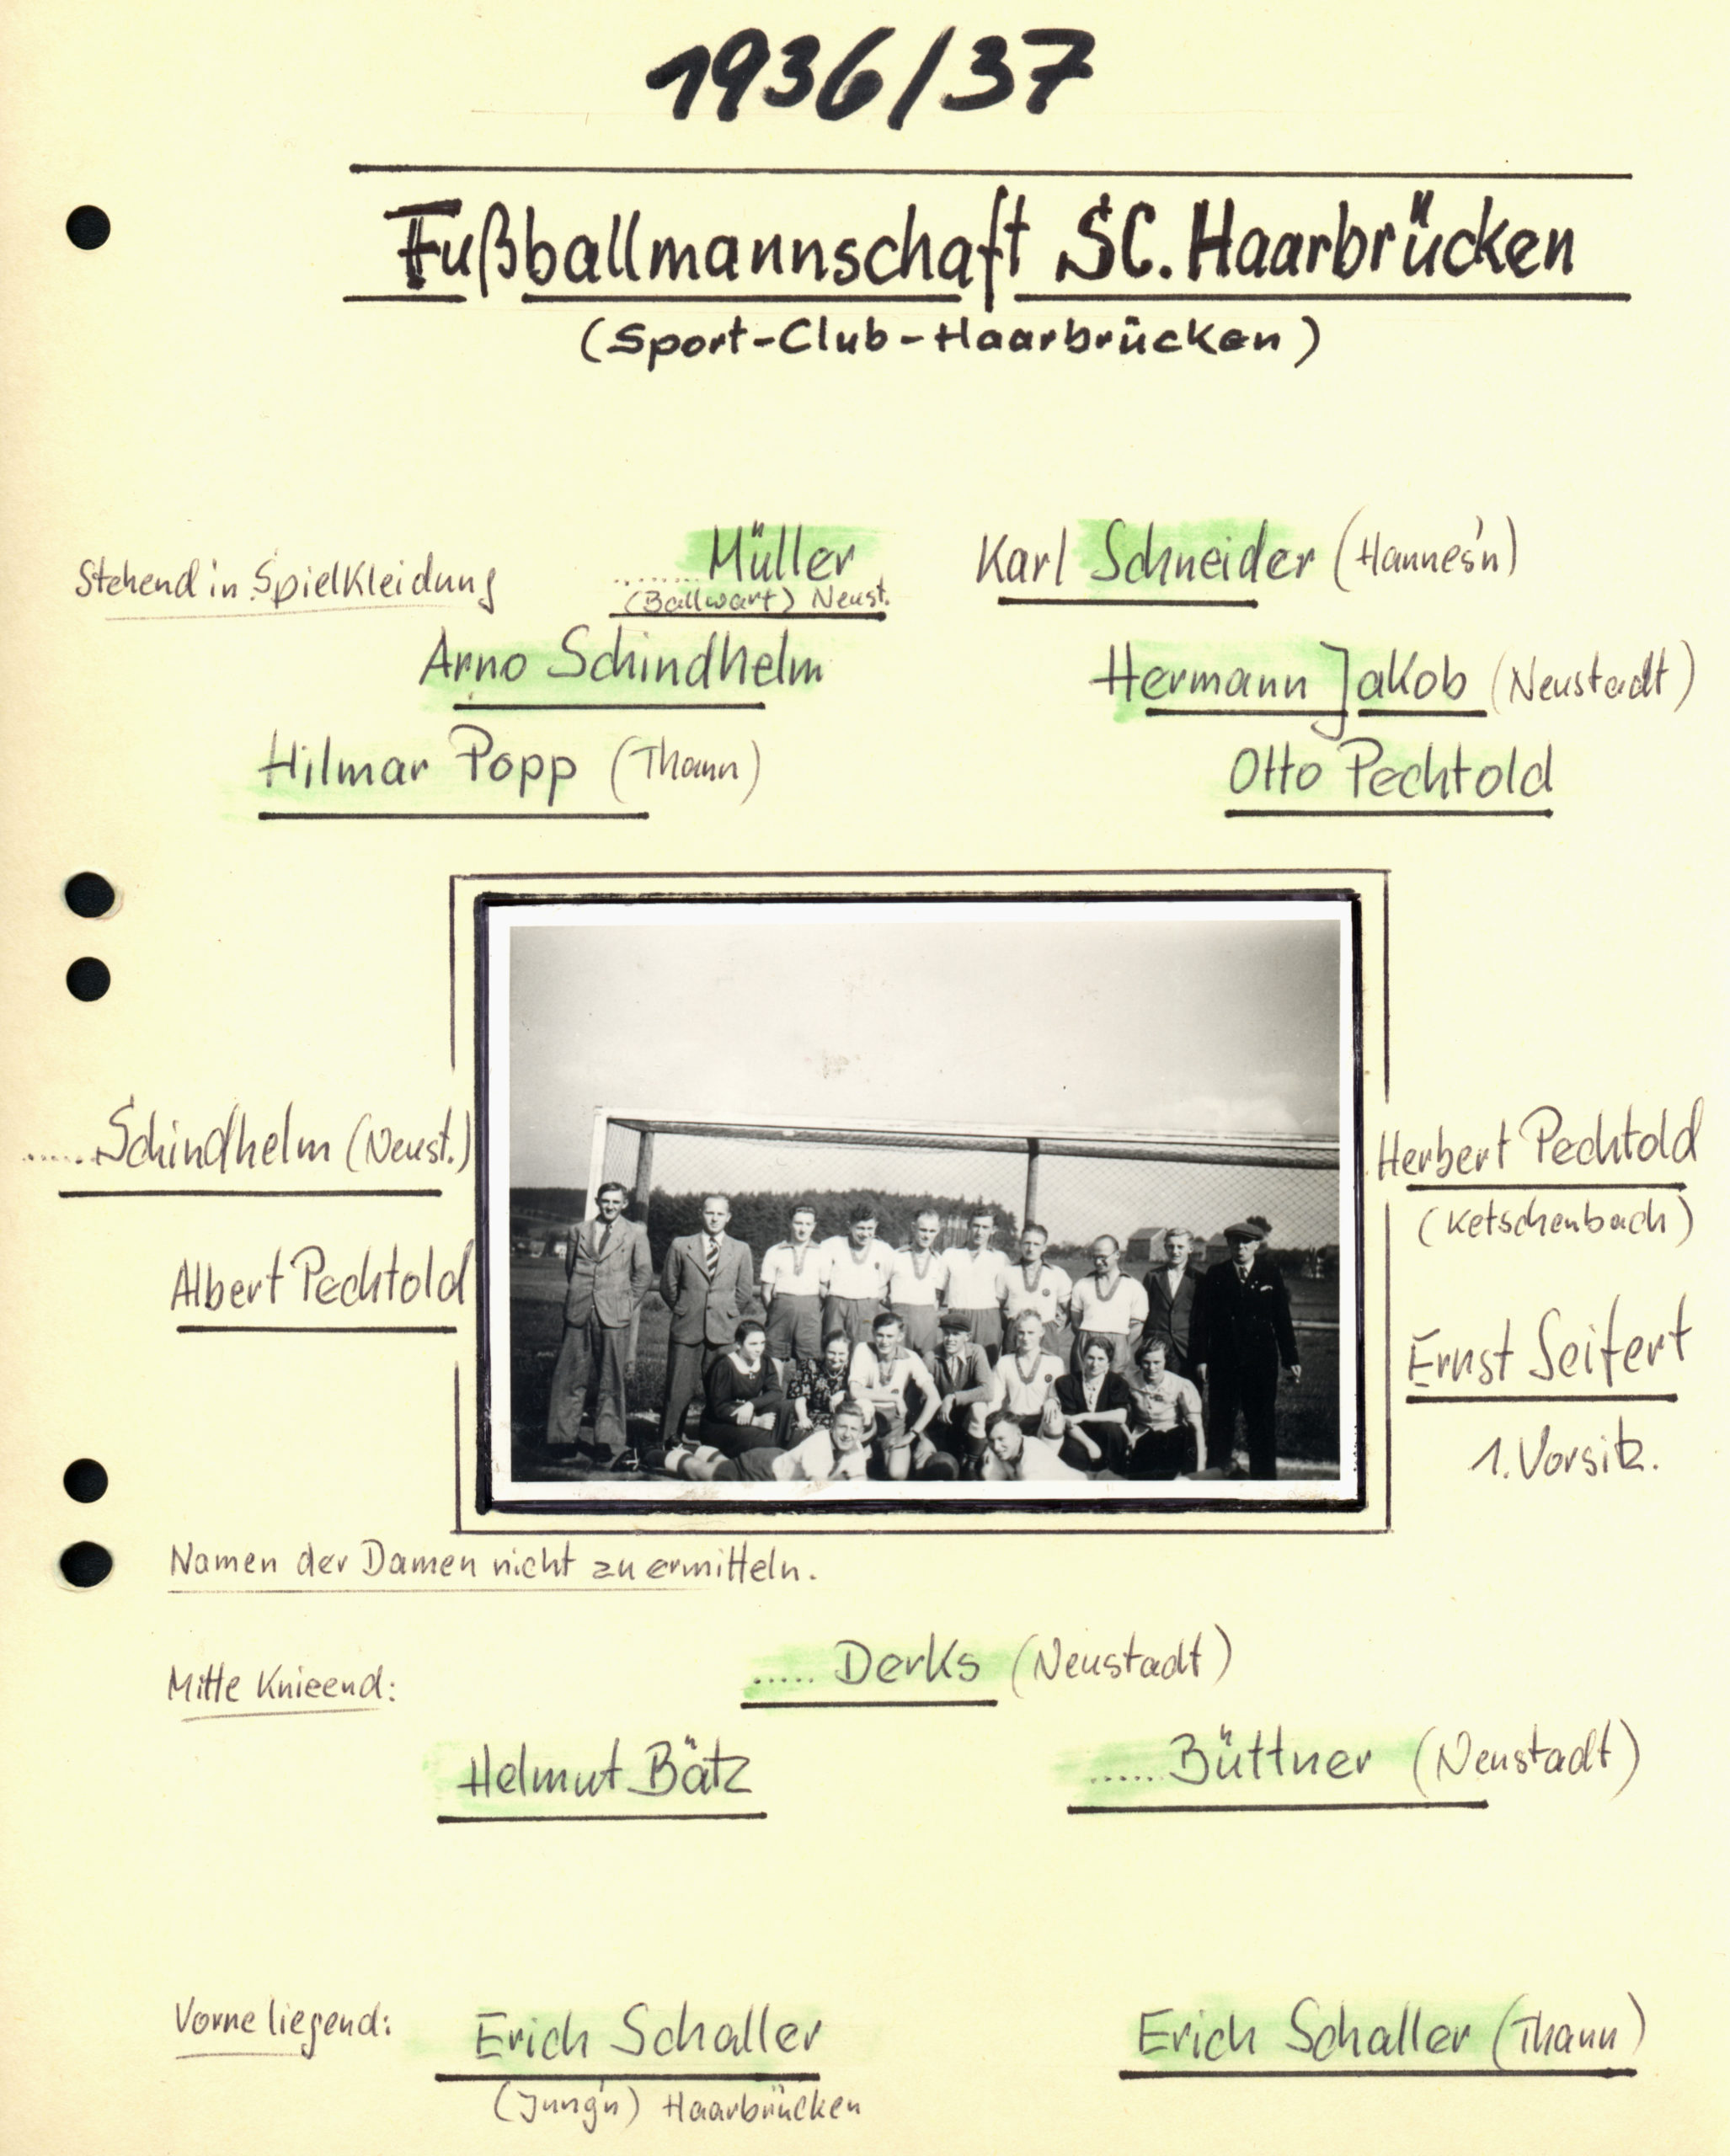 1936/37
Fußballmannschaft SC. Haarbrücken
(Sport-Club-Haarbrücken)
Stehend in Spielkleidung
........Müller
(Ballwart) Neust.
Karl Schneider (Hannes'n)
Arno Schindhelm
Hermann Jakob (Neustadt)
Hilmar Popp (Thann)
Otto Pechtold
......Schindhelm (Neust.)
Albert Pechtold
Herbert Pechtold
(Ketschenbach)
Ernst Seifert
1. Vorsitz.
Namen der Damen nicht zu ermitteln.
Mitte Knieend:
..... Derks (Neustadt)
Helmut Bätz
......Büttner (Neustadt)
Vorne liegend:
Erich Schaller
(Jung'n) Haarbrücken
Erich Schaller (Thann)